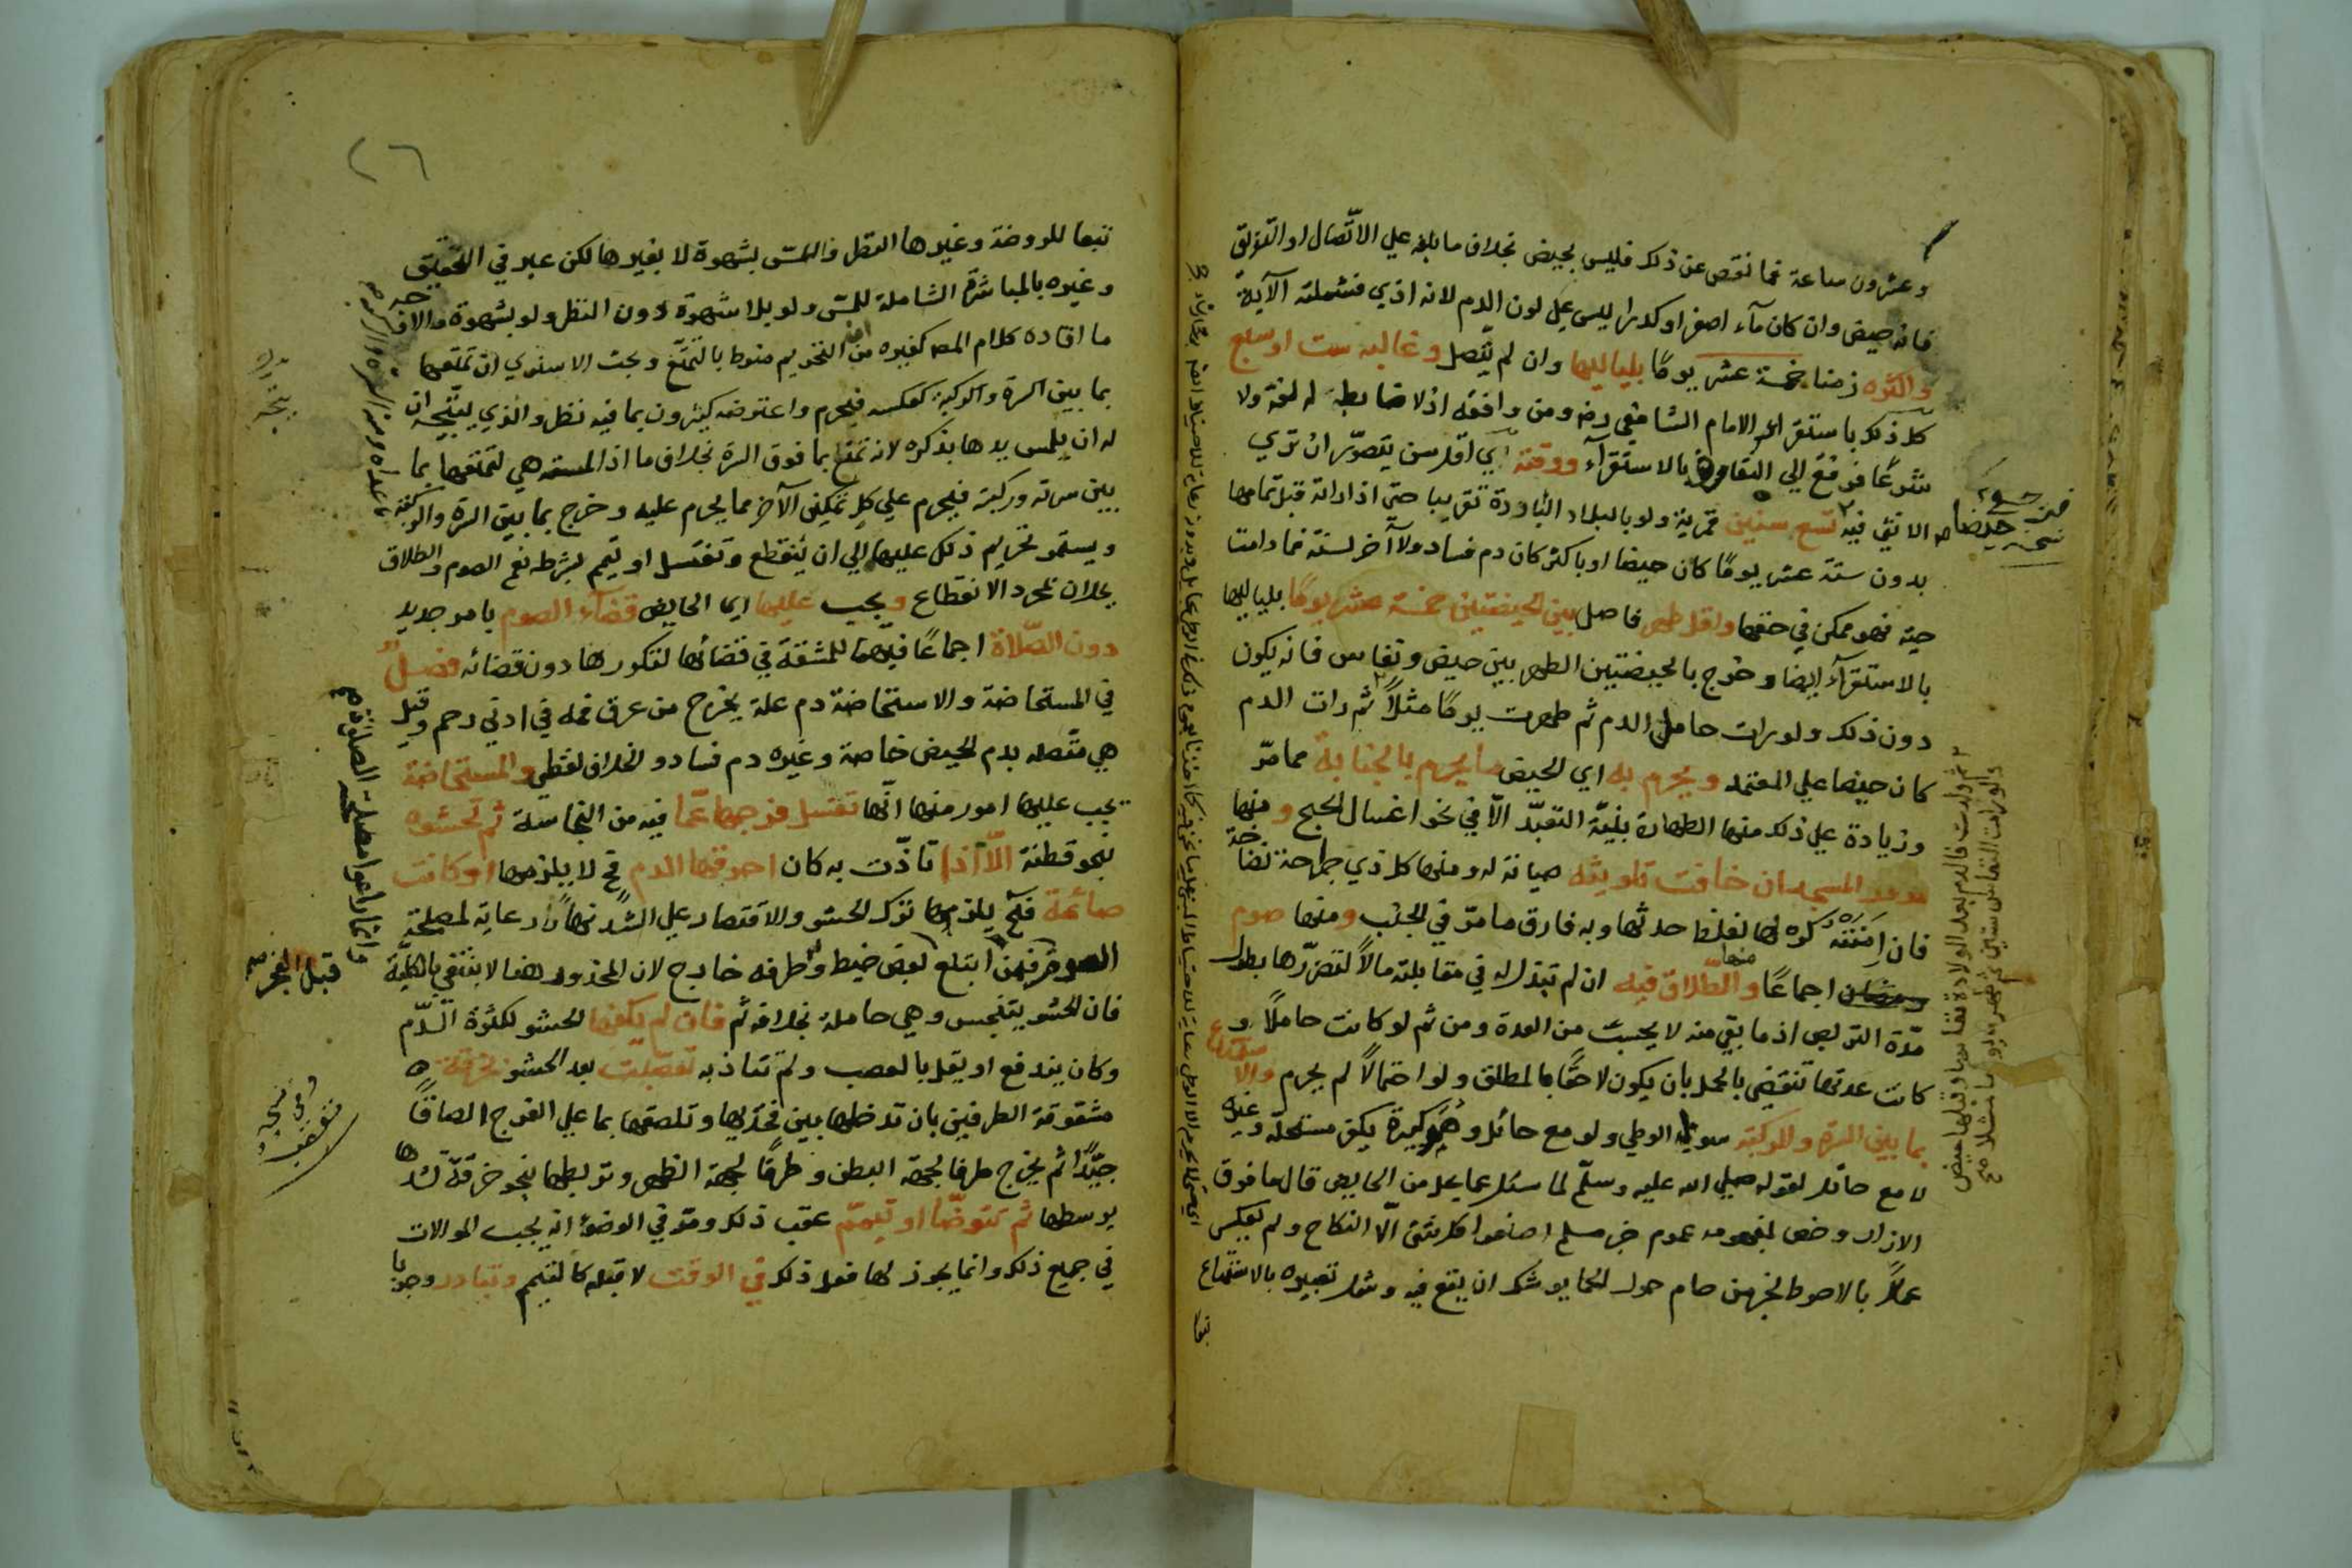 وعشرون ساعة فما نقص عن ذلك فليس بحيض بخلاف ما بلغه علي الاتّصال او التفرّق
فانه حيض وان كان مآء اصفر او كدرا ليس علي لون الدم لانه اذي فشملته الآية
واكثره زمنا خمسة عشر يومًا بلياليها وان لم يتّصل وغالبه ست او سبع
كل ذلك باستقرآء الامام الشافعي رضه ومن وافقه اذ لا ضابط له لغة ولا
شرعًا فرجع الي التعارف بالاستقرآء ووقته اي اقل سن يتصوّر ان تري
الانثي فيه تسع سنين قمرية ولو بالبلاد الباردة تقريبا حتي اذا راته قبل تمامها
بدون ستة عشر يومًا كان حيضا او باكثر كان دم فساد ولا آخر لسنّه فما دامت
حية فهو ممكن في حقها واقل طهر فاصل بين الحيضتين خمسة عشر يومًا بلياليها
بالاستقرآء ايضا وخرج بالحيضتين الطهر بين حيض ونفاس فانه يكون
دون ذلك ولو رات حامل الدم ثم طهرت يومًا مثلًا ثم رات الدم
كان حيضا علي المعتمد ويحرم به اي الحيض ما يحرم بالجنابة مما مرّ
وزيادة علي ذلك منها الطهارة بنيّة التعبّد الّا في نحو اغسال الحج ومنها
مرور المسجد ان خافت تلويثه صيانة له ومنها كل ذي جراحة نضاخة
فان امنته كره لها لغلظ حدثها وبه فارق ما مرّ في الجنب ومنها صوم
اجماعًا ومنها الطّلاق فيه ان لم تبذل له في مقابلته مالًا لتضرّرها بطول
مدّة التربص اذ ما بقي منه لا يحسب من العدة ومن ثم لو كانت حاملًا و
كانت عدتها تنقضي بالحمل بان يكون لاحقًا بالمطلق ولو احتمالًا لم يحرم والاستمتاع
بما بين السرة والركبة سوي الوطي ولو مع حائل وهو كبيرة يكفر مستحله وغيره
لا مع حائل لقوله صلي الله عليه وسلّم لما سئل عما يحل من الحايض قال ما فوق
الازار وخص لمفهومه عموم خبر مسلم اصنعوا كل شئ الّا النكاح ولم يعكس
عملًا بالاحوط لخبر من حام حول الحما يوشك ان يقع فيه وشمل تعبيره بالاستمتاع
تبعا
حيضا صح
٢٦
تبعا للروضة وغيرها النظر واللمسّ بشهوة لا بغيرها لكن عبر في التحقيق
وغيره بالمباشرة الشاملة للمسّ ولو بلا شهوة دون النظر ولو بشهوة والاوجه
ما افاده كلام المص كغيره من التحريم منوط بالتمتّع وبحث الاسنوي ان تمتعها
بما بين السرة والركبة كعكسه فيحرم واعترضه كثيرون بما فيه نظر والذي يتّجه ان
له ان يلمس يدها بذكره لانه تمتع بما فوق السرة بخلاف ما اذا لمسته هي لتمتعها بما
بين سرته وركبته فيحرم علي كل تمكين الآخر مما يحرم عليه وخرج بما بين السرة والركبة
ويستمر تحريم ذلك عليها الي ان ينقطع وتغتسل او تيمم بشرطه نعم الصوم والطلاق
يحلان بمجرد الانقطاع ويجب عليها اي الحايض قضآء الصوم بامر جديد
دون الصّلاة اجماعًا فيهما للمشقة في قضائها لتكررها دون قضائه فصلٌ
في المستحاضة والاستحاضة دم علة يخرج من عرق فمه في ادني رحم وقيل
هي متّصله بدم الحيض خاصة وغيره دم فساد والخلاف لفظي والمستحاضة
يجب عليها امور منها انّها تغسل فرجها عمّا فيه من النجاسة ثم تحشوه
بنحو قطنة الّا اذا تاذّت به كان احرقها الدم فح لا يلزمها او كانت
صائمة فح يلزمها ترك الحشو والاقتصار علي الشدّ نهارًا رعاية لمصلحة
الصوم فيمن ابتلع بعض خيط وطرفه خارج لان المحذور هنا لا ينتفي بالكلّية
فان الحشو يتنجس وهي حاملته بخلافه ثم فان لم يكفها الحشو لكثرة الدّم
وكان يندفع او يقل بالعصب ولم تتاذ به تعصّبت بعد الحشو بخرقة
مشقوقة الطرفين بان تدخلها بين فخذيها وتلصقها بما علي الفرج الصاقًا
جيّدًا ثم يخرج طرفا لجهة البطن وطرفًا لجهة الظهر وتربطها بنحو خرقة تشدها
بوسطها ثم تتوضّا او تتيمّم عقب ذلك ومرّ في الوضوء انه يجب الموالات
في جميع ذلك وانما يجوز لها فعل ذلك في الوقت لا قبله كالتيمم وتبادر وجوبا
قبل الفجر صح